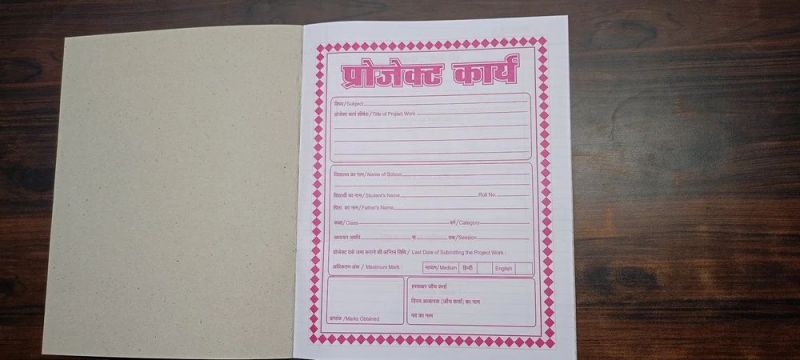 प्रोजेक्ट कार्य
विषय/Subject
प्रोजेक्ट कार्य शीर्षक/Title of Project Work
विद्यालय का नाम/Name of School
विद्यार्थी का नाम/Student's Name Roll No.
पिता का नाम/Father's Name
कक्षा/Class वर्ग/Category
अध्ययन अवधि से सत्र/Session
प्रोजेक्ट वर्क जमा कराने की अन्तिम तिथि/ Last Date of Submitting the Project Work :
अधिकतम अंक / Maximum Mark. माध्यम/Medium हिन्दी English
हस्ताक्षर जाँच कर्ता
विषय अध्यापक (जाँच कर्ता) का नाम
पद का नाम
प्राप्तांक /Marks Obtained